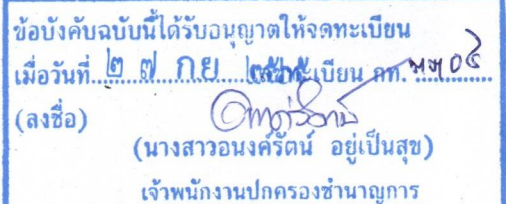 ข้อบังคับฉบับนี้ได้รับอนุญาตให้จดทะเบียน
เมื่อวันที่ ๒ ๗ กย เลขทะเบียน กท.
(ลงชื่อ)
(นางสาวอนงค์รัตน์ อยู่เป็นสุข)
เจ้าพนักงานปกครองชำนาญการ